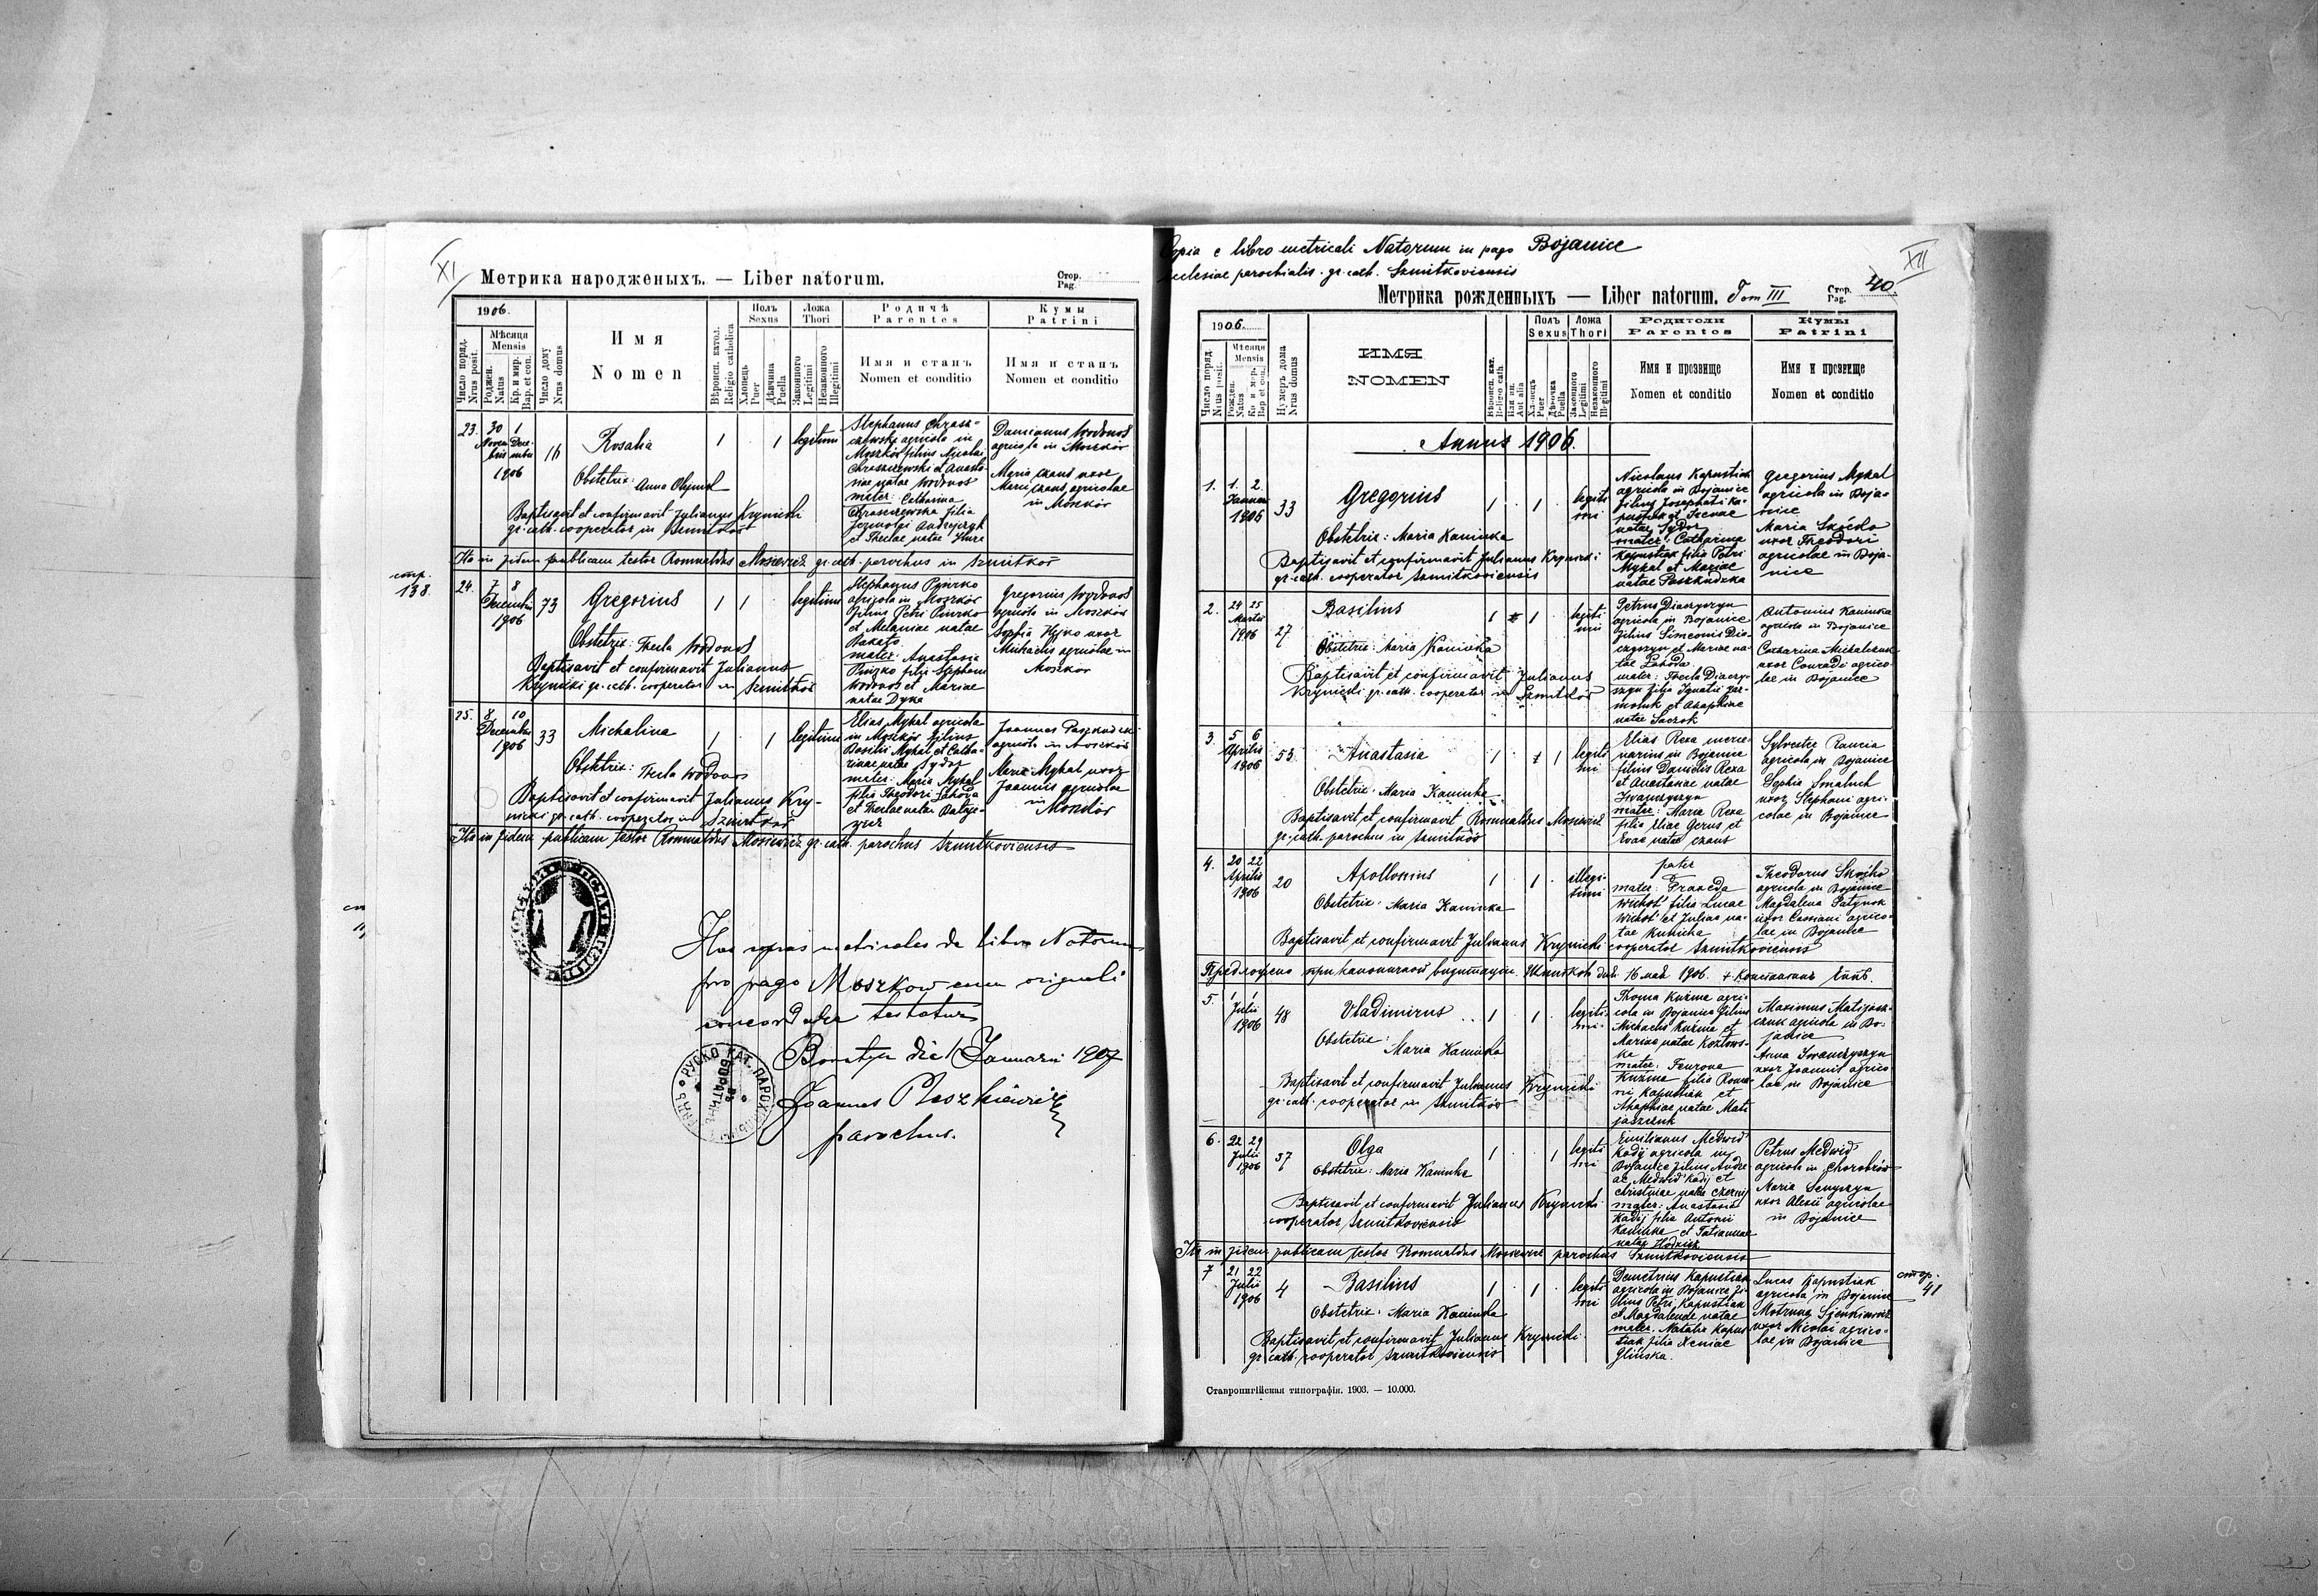 XI
Метрика народженыхъ. — Liber natorum.
Стор.
Pag.
1906.
Число поряд.
Nrus posit.
Мѣсяця
Mensis
Роджен.
Natus
Кр. и мир.
Bap. et con.
Число дому
Nrus domus
Имя
Nomen
Вѣроисп. катол.
Religio catholica
Полъ
Sexus
Хлопець
Puer
Дѣвчина
Puella
Ложа
Thori
Законного
Legitimi
Незаконного
Illegitimi
Родичѣ
Parentes
Имя и станъ
Nomen et conditio
Кумы
Patrini
Имя и станъ
Nomen et conditio
23.
30 1
Novem Dece-
bris mbris
1906
16
Rosalia
1
1
legitimi
Obstetrix: Anna
Baptisavit et confirmavit Julianus Krynicki
gr. cath. cooperator in Szmitków
Stephanus Chrasz-
czewski agricola in
Moszków filius Nicolai
Chraszczewski et Anasta-
siae natae Wodonos
mater: Catharina
Chraszczewska filia
Andrejczyk
et Theclae natae
Damianus Wodonos
agricola in Moszków
Maria Chaus uxor
Marci Chaus agricolae
in Moszków
Ita in fidem publicam testor Romualdus Mosiewicz gr. cath. parochus in Szmitków
стр.
138.
24.
7 8
Decembris
1906
73
Gregorius
1
1
legitimi
Obstetrix: Thecla Wodonos
Baptisavit et confirmavit Julianus
Krynicki gr. cath. cooperator in Szmitków
Stephanus
agricola in Moszków
filius Petri
et Melaniae natae
mater: Anastasia
filia Stephani
Wodonos et Mariae
natae Dyka
Gregorius Wodonos
agricola in Moszków
Sophia Hyjko uxor
Michaelis agricolae in
Moszków
25.
8 10
Decembris
1906
33
Michalina
1
1
legitimi
Obstetrix: Thecla Wodonos
Baptisavit et confirmavit Julianus Kry-
nicki gr. cath. cooperator in Szmitków
Elias Mykal agricola
in Moszków filius
Basilii Mykal et Catha-
rinae natae Sydor
mater: Maria Mykal
filia Theodori Lahoda
et Theclae natae
Joannes Paszkudzki
agricola in Moszków
Maria Mykal uxor
Joannis agricolae
in
Moszków
Ita in fidem publicam testor Romualdus Mosiewicz gr. cath. parochus Szmitkoviensis
Has copias metricales de libro Natorum
pro pago Moszkow cum originali
concordare testatur
die 1 Januarii 1907
Joannes
parochus.
РУСКО КАТ. ПАРОХ
Copia e libro metricali Natorum in pago Bojanice
ecclesiae parochialis gr. cath. Szmitkoviensis
XII
Метрика рожденныхъ — Liber natorum. Tom III
Стор.
Pag.
40
1906.
Число поряд.
Nrus posit.
Мѣсяця
Mensis
Рожден.
Natus
Кр и мѵр.
Bap et con.
Нумеръ дома
Nrus domus
ИМЯ
NOMEN
Вѣроисп. кат.
Religio cath.
Или ин.
Aut alia
Полъ
Sexus
Хлопецъ
Puer
Дѣвочка
Puella
Ложа
Thori
Законного
Legitimi
Незаконного
Illegitimi
Родители
Parentes
Имя и прозвище
Nomen et conditio
Кумы
Patrini
Имя и прозвище
Nomen et conditio
Annus 1906.
1.
1. 2.
Januar
1906
33
Gregorius
1
1
legiti
mi
Obstetrix: Maria Kaminka
Baptisavit et confirmavit Julianus Krynicki
gr. cath. cooperator Szmitkoviensis
Nicolaus Kapustiak
agricola in Bojanice
filius Josaphati Ka-
pustiak et Irenae
natae Sydor
mater: Catharina
Kapustiak filia Petri
Mykal et Mariae
natae Paszkudzka
Gregorius Mykal
agricola in Boja-
nice
Maria Skócko
uxor Theodori
agricolae in Boja-
nice
2.
24 25
Martii
1906
27
Basilius
1
1
legiti
mi
Obstetrix: Maria Kaminka
Baptisavit et confirmavit Julianus
Krynicki gr. cath. cooperator in Szmitków
Petrus Diaczyszyn
agricola in Bojanice
filius Simeonis Dia-
czyszyn et Mariae na-
tae Lahoda
mater: Thecla Diaczy-
szyn filia Ignatii
et Ahaphiae
natae
Antonius Kaminka
agricola in Bojanice
Catharina Michalczuk
uxor Conradi agrico-
lae in Bojanice
3.
5 6
Aprilis
1906
53
Anastasia
1
1
legiti
mi
Obstetrix: Maria Kaminka
Baptisavit et confirmavit Romualdus Mosiewicz
gr. cath. parochus in Szmitków
Elias Rexa merce-
narius in Bojanice
filius Danielis Rexa
et Anastasiae natae
Iwanczyszyn
mater: Maria Rexa
filia Eliae Gerus et
Evae natae Chaus
Sylvester Rancia
agricola in Bojanice
Sophia Smaluch
uxor Stephani agri-
colae in Bojanice
4.
20 22
Aprilis
1906
20
Apollonius
1
1
illegi-
timi
Obstetrix: Maria Kaminka
Baptisavit et confirmavit Julianus Krynicki cooperator Szmitkoviensis
pater
mater:
filia Lucae
et Juliae na-
tae Kunicha
Theodorus Skócko
agricola in Bojanice
Magdalena Patynok
uxor Cassiani agrico-
lae in Bojanice
Предложено при каноничной визитации. Шмитковъ дня 16 мая 1906. + Константинъ Епп.
5.
1 1
Julii
1906
48
Vladimirus
1
1
legiti-
mi
Obstetrix:
Maria Kaminka
Baptisavit et confirmavit Julianus Krynicki
gr. cath. cooperator in Szmitków
Thoma Kuźma agri-
cola in Bojanice filius
Michaelis Kuźma et
Mariae natae Kozłows-
ka
mater: Fevrona
Kuźma filia Roma-
ni Kapustiak et
Ahaphiae natae Mati
jaszczuk
Maximus Matijasz-
czuk agricola in Bo-
janice
Anna Iwanczyszyn
uxor Joannis agrico
lae in Bojanice
6.
22 29
Julii
1906
37
Olga
1
1
legiti
mi
Obstetrix: Maria Kaminka
Baptisavit et confirmavit Julianus Krynicki
cooperator Szmitkoviensis
Emilianus Medwid
Kadij agricola in
Bojanice filius Andre
ae Medwid Kadij et
Christinae natae Czernij
mater: Anastasia
Kadij filia Antonii
Kaminka et Tatiannae
natae
Petrus Medwid
agricola in Chorobrów
Maria Senyszyn
uxor Alexii agricolae
in Bojanice
Ita in fidem publicam testor Romualdus Mosiewicz parochus Szmitkoviensis
7
21 22
Julii
1906
4
Basilius
1
1
legiti
mi
Obstetrix: Maria Kaminka
Baptisavit et confirmavit Julianus Krynicki
gr. cath. cooperator Szmitkoviensis
Demetrius Kapustiak
agricola in Bojanice fi-
lius Petri Kapustiak
et Magdalenae natae
mater: Natalia Kapus
tiak filia Xeniae
Glińska.
Lucas Kapustiak
agricola in Bojanice
Motruna
uxor Nicolai agrico-
lae in Bojanice
стор.
41
Ставропигійская типографія. 1903. — 10.000.